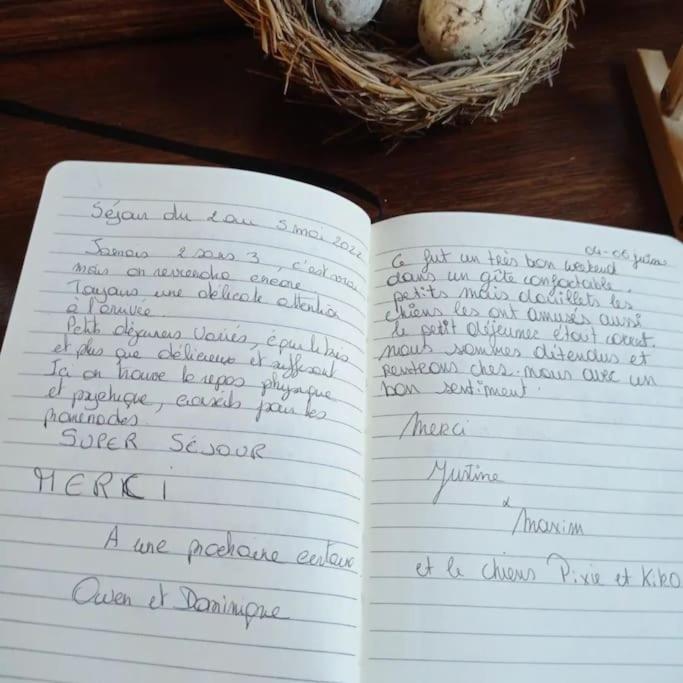 Séjour du 2 au 5 mai 2022
Jamais 2 sans 3, c'est vrai
mais on reviendra encore
Toujours une délicate attention
à l'arrivée.
Petits déjeuners variés, équilibrés
et plus que délicieux et suffisant
Ici on trouve le repos physique
et psychique, conseils pour les
promenades.
SUPER SÉJOUR
MERCI
A une prochaine certaine
Owen et Dominique
04-06 juin
Ce fut un très bon weekend
dans un gîte confortable.
petits mais douillets les
chiens les ont amusés aussi
le petit déjeuner était
nous sommes détendus et
rentrons chez nous avec un
bon sentiment.
Merci
Justine
&
Maxim
et le chiens Pixie et Kiko